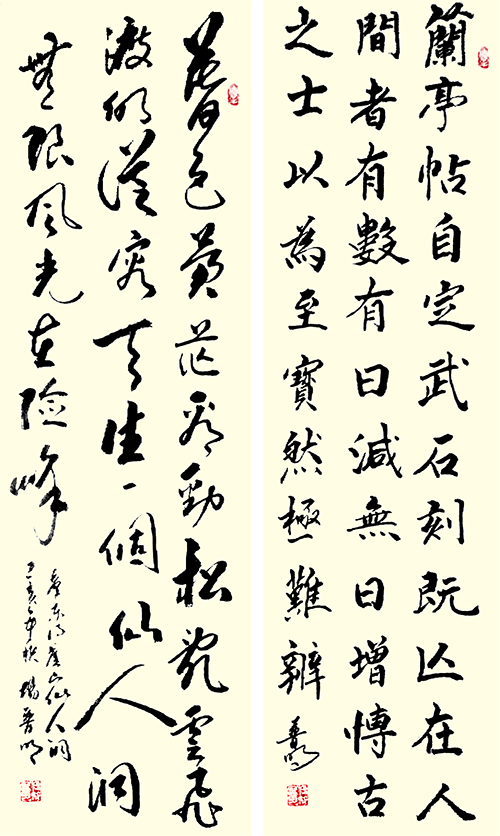 蘭亭帖自定武石刻既亡在人
間者有數有日減無日增博古
之士以為至寶然極難辨
暮色蒼茫看勁松亂雲飛
渡仍從容天生一個仙人洞
無限風光在險峰
東詩廬山仙人洞
己亥年秋